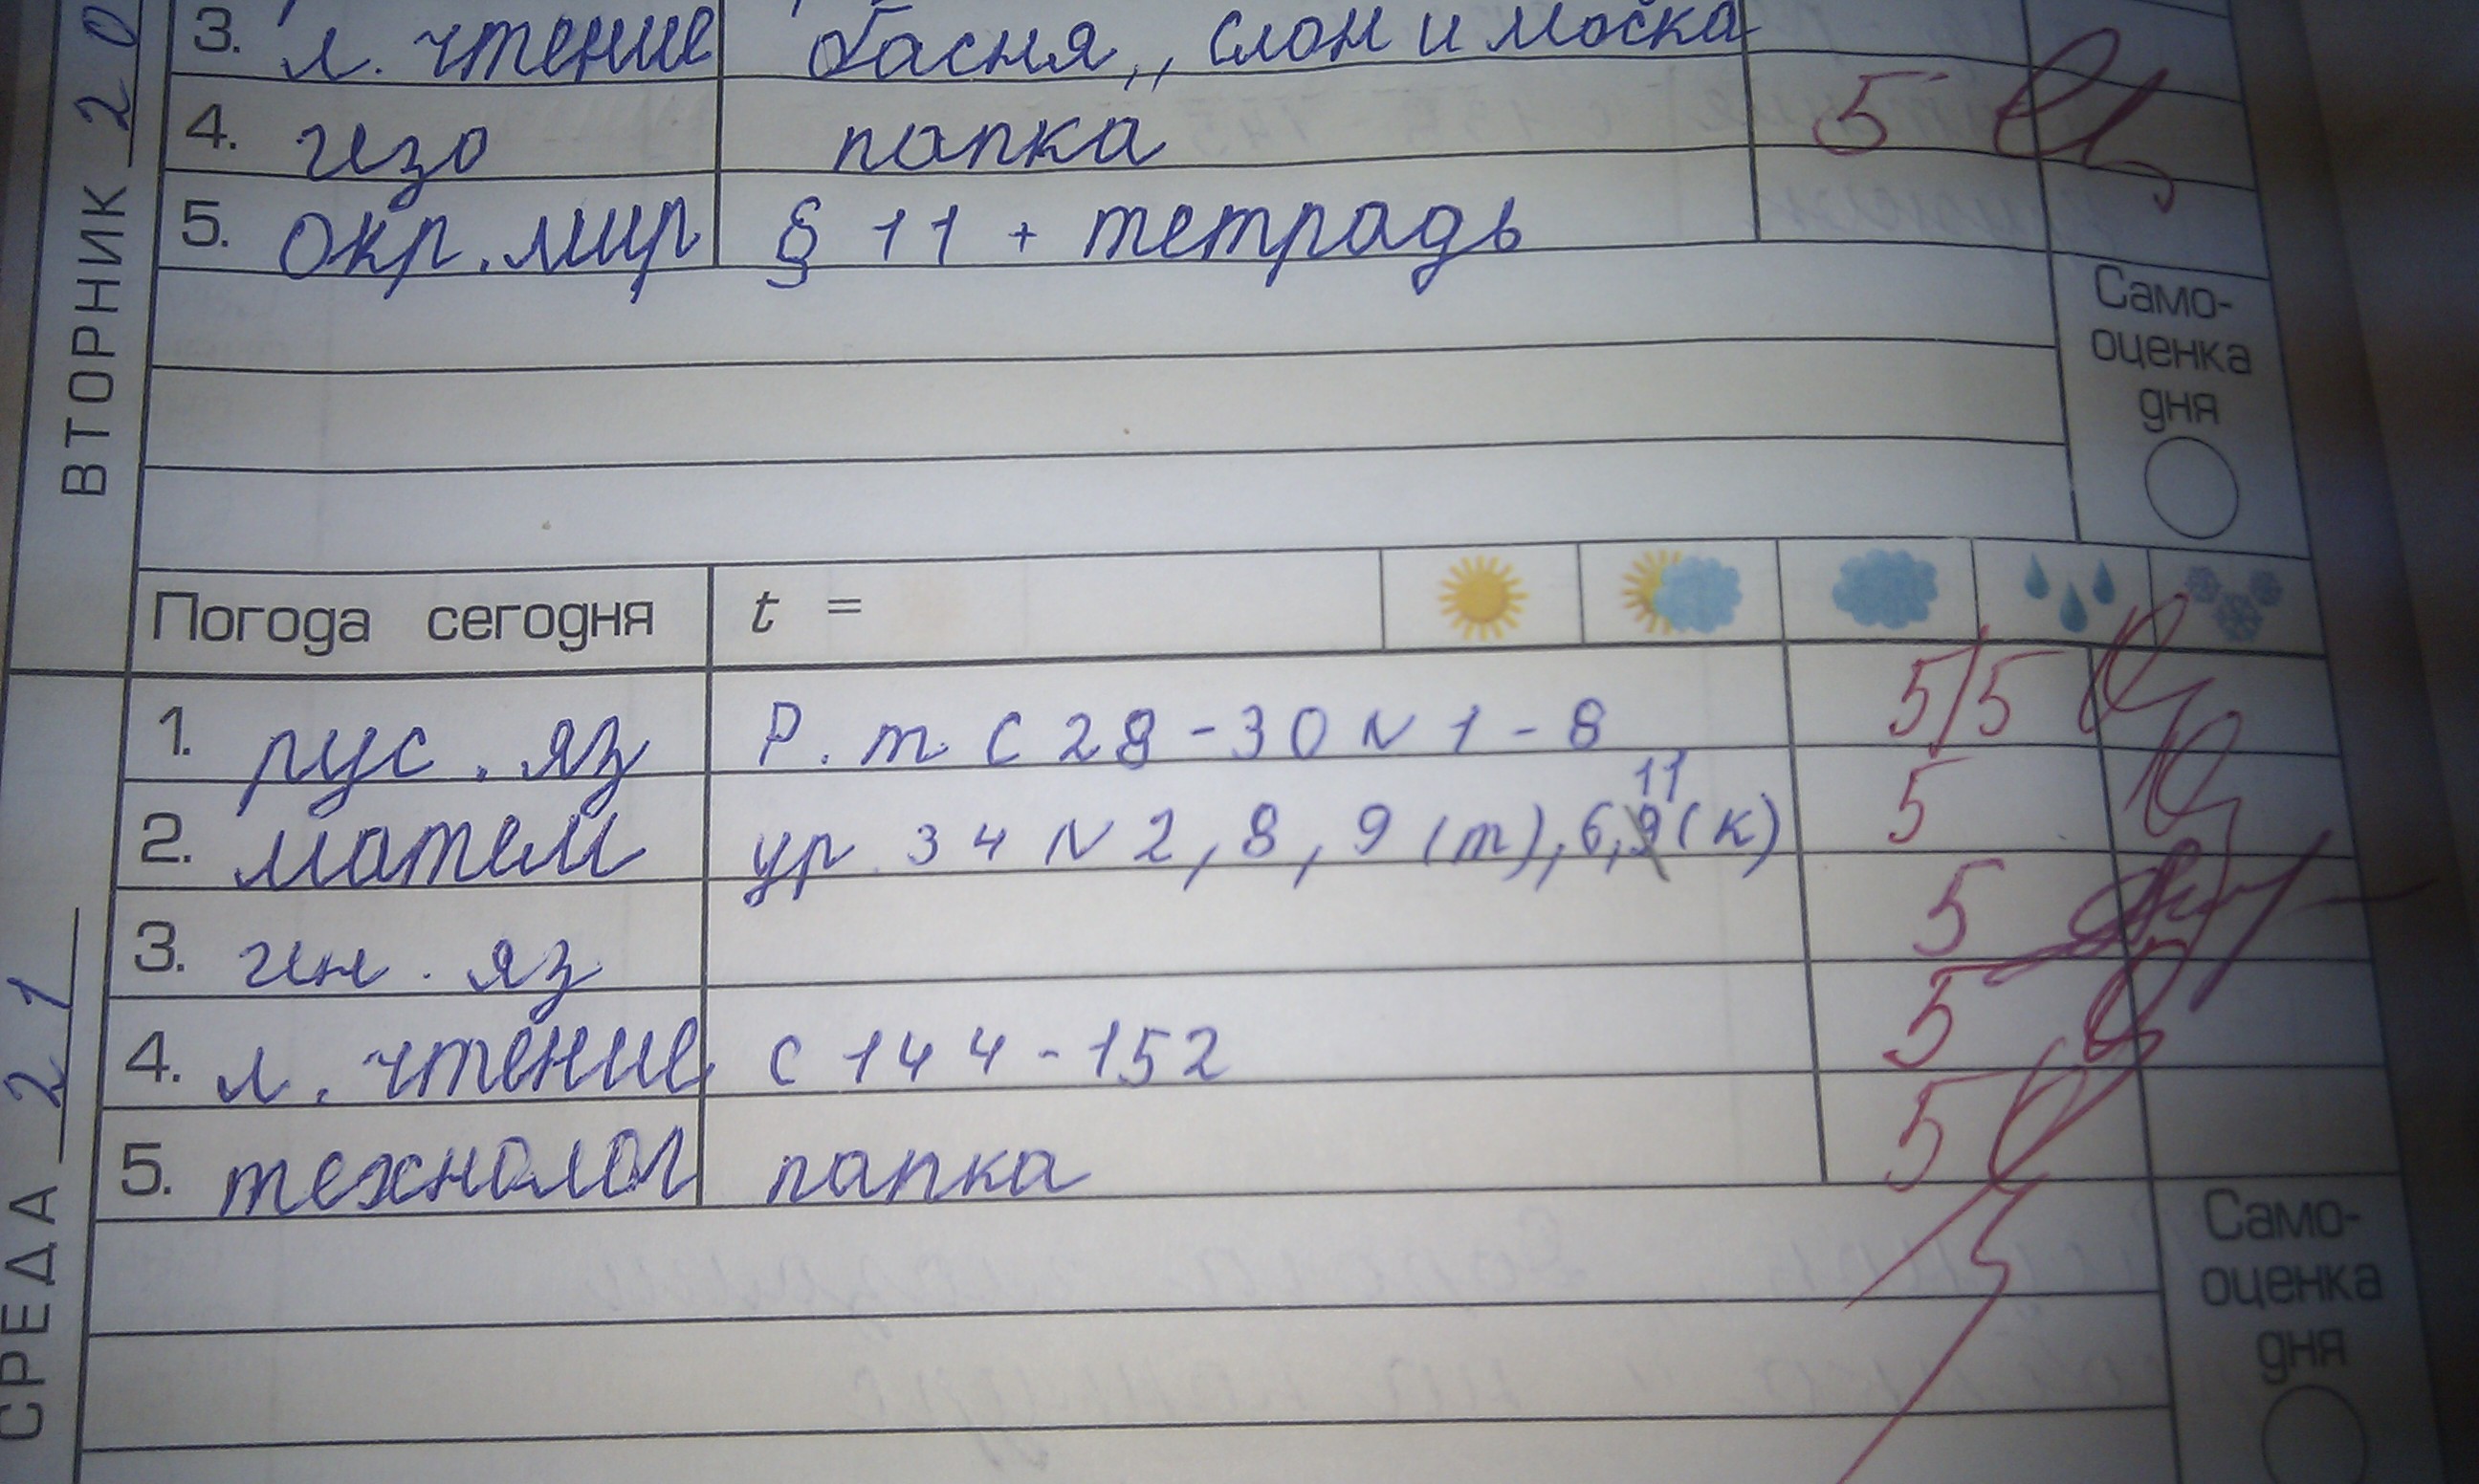 ВТОРНИК 20
3. л. чтение басня ,, слон и моська
4. изо папка 5
5. окр. мир § 11 + тетрадь
Само-
оценка
дня
Погода сегодня t =
СРЕДА 21
1. рус. яз Р. т с 28 - 30 N 1 - 8 5/5
2. матем ур 34 N 2, 8, 9 (т), 6, 11 (к) 5
3. ин. яз 5
4. л. чтение с 144 - 152 5
5. технолог папка 5
Само-
оценка
дня